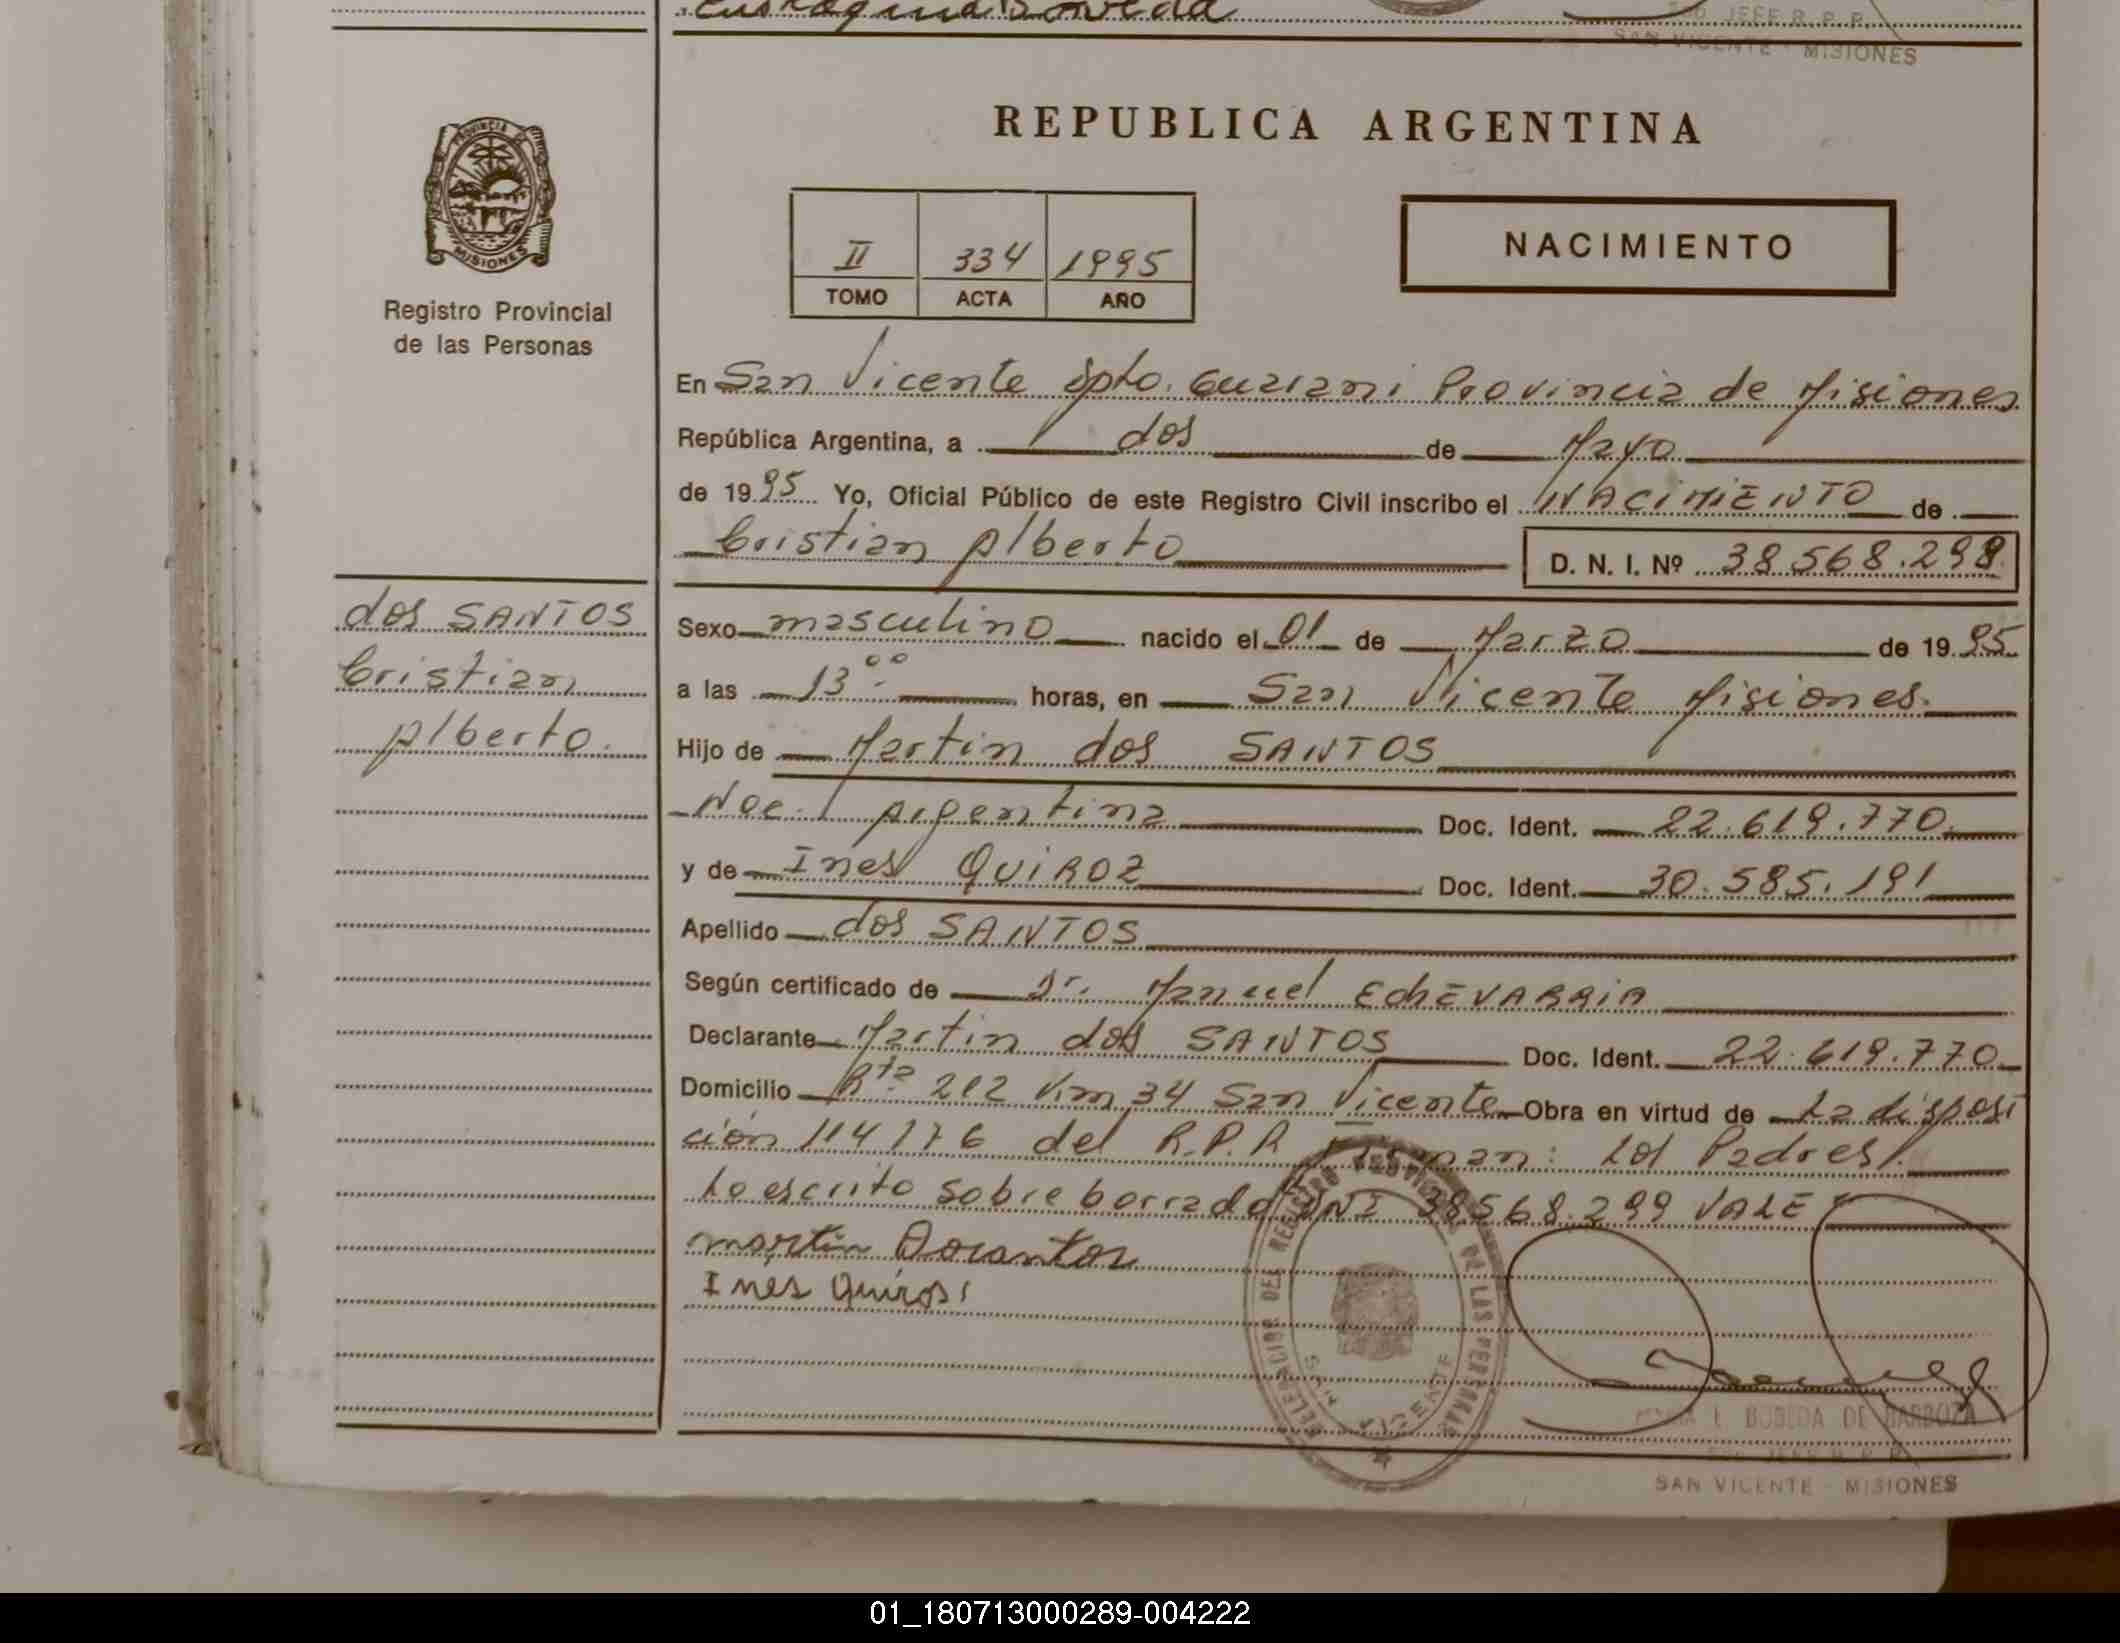 SAN VICENTE - MISIONES
REPUBLICA ARGENTINA
PROVINCIA DE
MISIONES
Registro Provincial
de las Personas
II 334 1995
TOMO ACTA AÑO
NACIMIENTO
En San Vicente Dpto. Guarani Provincia de Misiones
República Argentina, a dos de Mayo
de 1995 Yo, Oficial Público de este Registro Civil inscribo el NACIMIENTO de
Cristian Alberto D. N. I. Nº 38.568.299
dos SANTOS
Cristian
Alberto.
Sexo masculino nacido el 01 de Marzo de 1995
a las 13:00 horas, en San Vicente Misiones.
Hijo de Martin dos SANTOS
Nac. Argentina Doc. Ident. 22.619.770
y de Ines QUIROZ Doc. Ident. 30.585.191
Apellido dos SANTOS
Según certificado de Dr. Manuel EChEVARRIA
Declarante Martin dos SANTOS Doc. Ident. 22.619.770
Domicilio Rta 212 Km 34 San Vicente Obra en virtud de La disposi
ción 114/76 del R.P.P. Firman: Los Padres.
Lo escrito sobre borrado DNI 38.568.299 VALE
martin Dosantos
Ines Quiros
DEL REGISTRO PROVINCIAL DE LAS PERSONAS
SAN VICENTE
BOBEDA DE BARBOZA
JEFE R. P. P.
SAN VICENTE - MISIONES
01_180713000289-004222